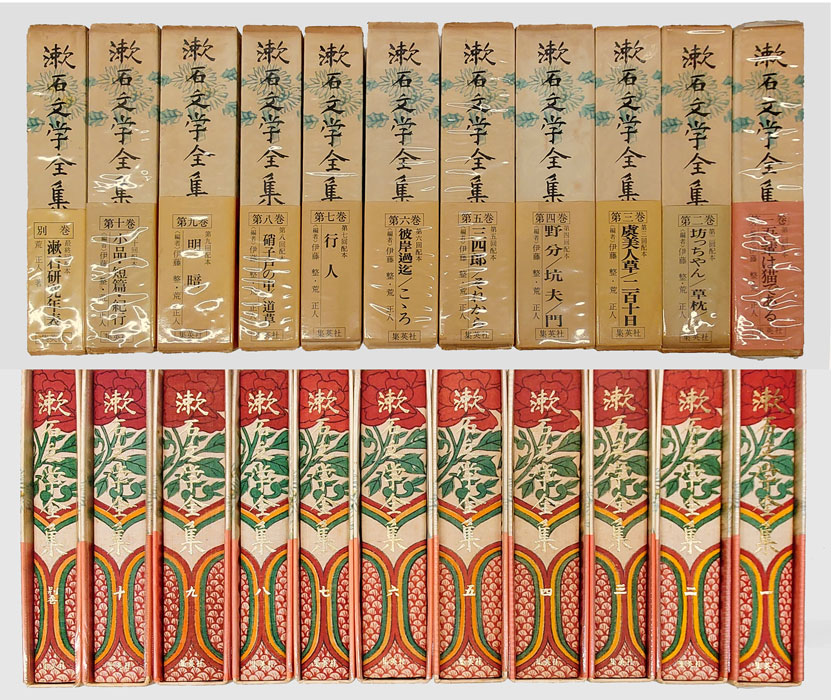 漱石文学全集
巻
は猫である
漱石文学全集
第二巻
坊っちゃん/草枕
伊藤 整・荒 正人
集英社
漱石文学全集
第三巻
第三回配本
虞美人草・二百十日
(編者)伊藤 整・荒 正人
集英社
漱石文学全集
第四巻
第四回配本
野分・坑夫・門
(編者)伊藤 整・荒 正人
集英社
漱石文学全集
第五巻
第五回配本
三四郎/それから
(編者)伊藤 整・荒 正人
集英社
漱石文学全集
第六巻
第六回配本
彼岸過迄/こころ
(編者)伊藤 整・荒 正人
集英社
漱石文学全集
第七巻
第七回配本
行人
(編者)伊藤 整・荒 正人
集英社
漱石文学全集
第八巻
硝子戸の中・道草
(編者)伊藤 整・荒 正人
漱石文学全集
第九巻
第九回配本
明暗
(編者)伊藤 整・荒 正人
漱石文学全集
第十巻
小品・短篇・紀行
(編者)伊藤 整・荒 正人
漱石文学全集
別巻
漱石研究年表
荒 正人
漱石文学全集
一
集英社
漱石文学全集
二
集英社
漱石文学全集
三
集英社
漱石文学全集
四
集英社
漱石文学全集
五
集英社
漱石文学全集
六
集英社
漱石文学全集
七
集英社
漱石文学全集
八
集英社
漱石文学全集
九
集英社
漱石文学全集
十
集英社
漱石文学全集
別巻
集英社